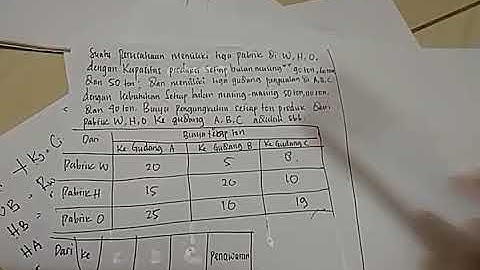 Suatu Perusahaan Memiliki tiga pabrik Di W, H, O.
dengan Kapasitas produksi setiap bulan masing" 90 ton, 60 ton
Dan 50 ton. Dan memiliki tiga gudang penjualan di A, B, C
dengan kebutuhan setiap bulan masing-masing 50 ton, 110 ton.
Dan 40 ton. Biaya Pengangkutan setiap ton produk Dari
pabrik W, H, O Ke gudang A, B, C adalah sbb.
Dari
Biaya tiap ton
Ke Gudang A Ke Gudang B Ke Gudang C
Pabrik W 20 5 8
Pabrik H 15 20 10
Pabrik O 25 10 19
HB =
HA
Dari Ke Penawaran